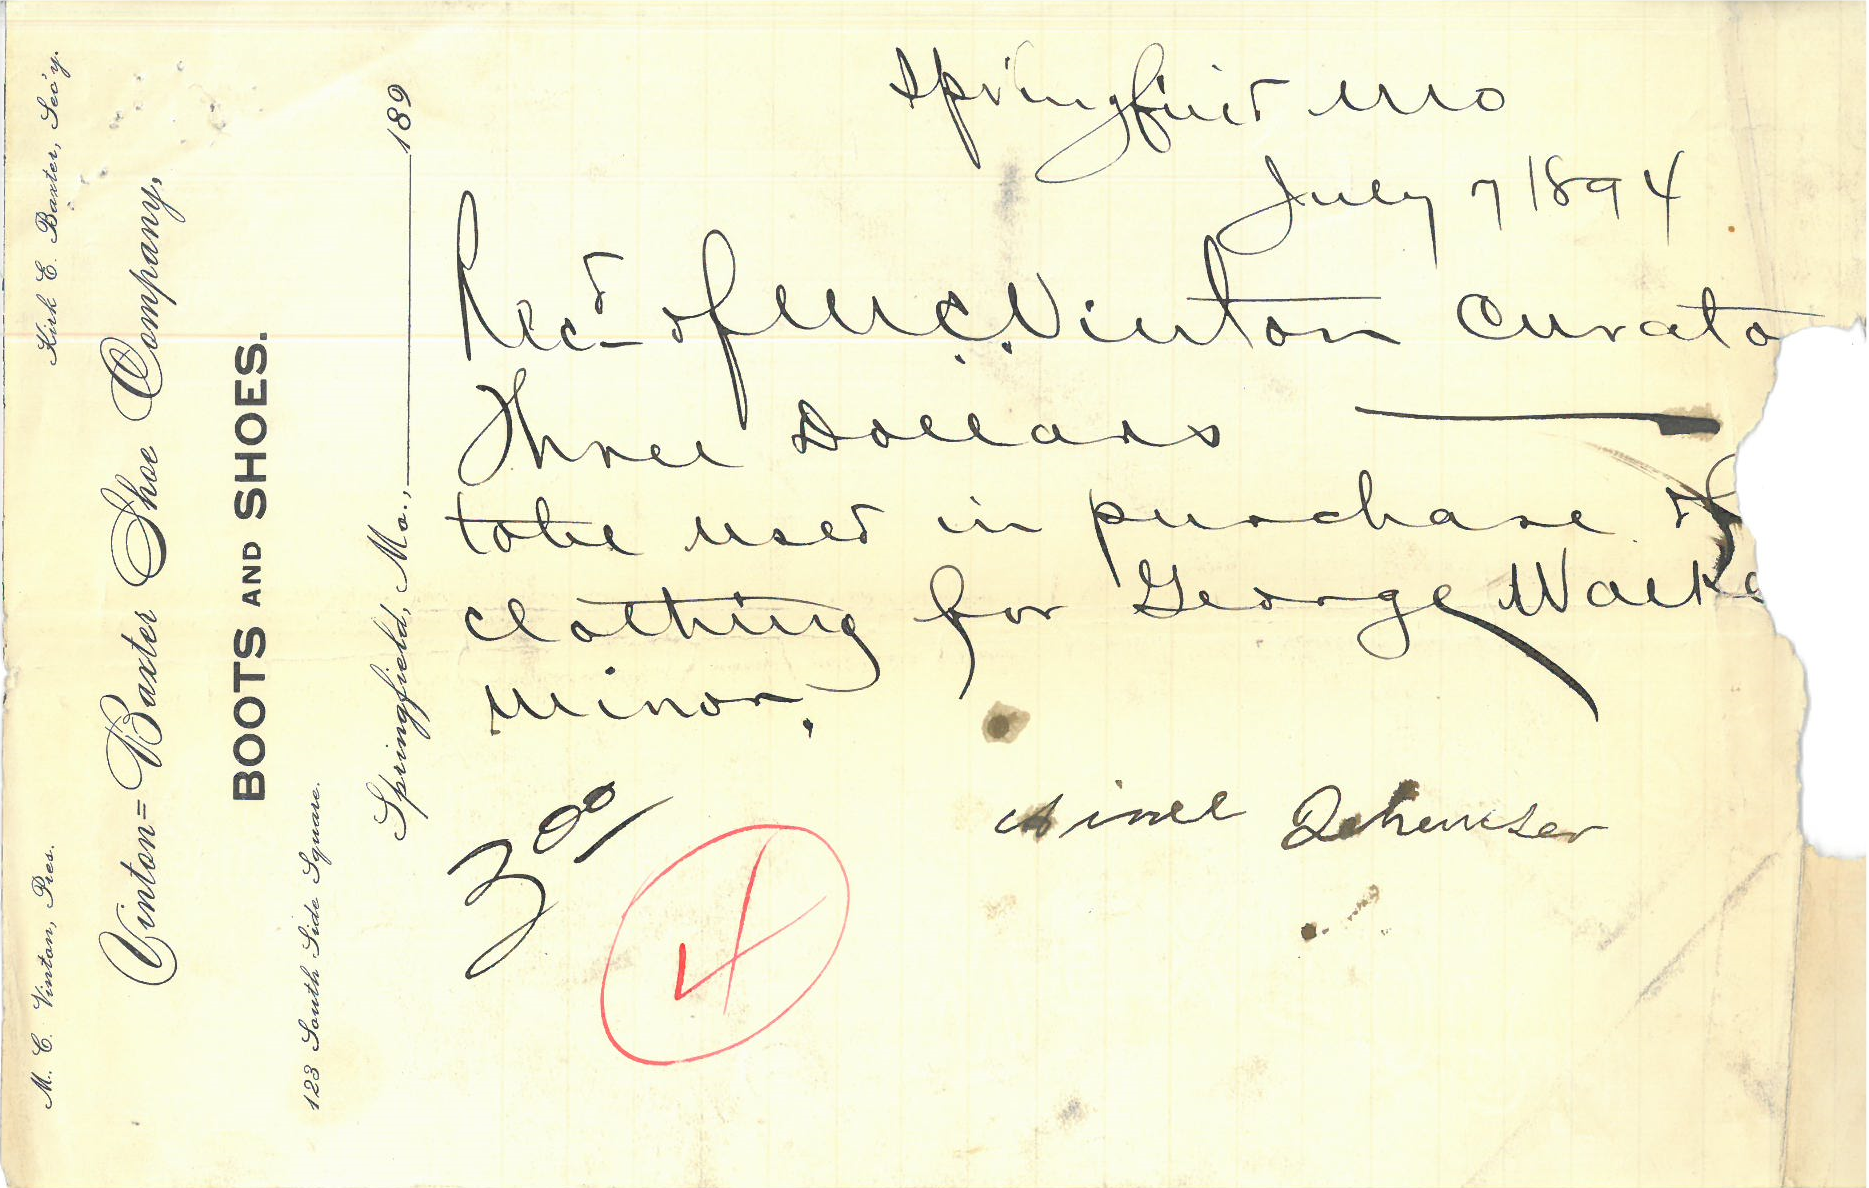 M. C. Vinton, Pres. Kirk E. Baxter, Sec'y.
Vinton=Baxter Shoe Company,
BOOTS AND SHOES.
123 South Side Square.
Springfield, Mo., 189
Springfield Mo
July 7 1894
Rec'd of M.C. Vinton Curato
Three Dollars
to be used in purchase of
clothing for George Walke
minor.
3 00
4